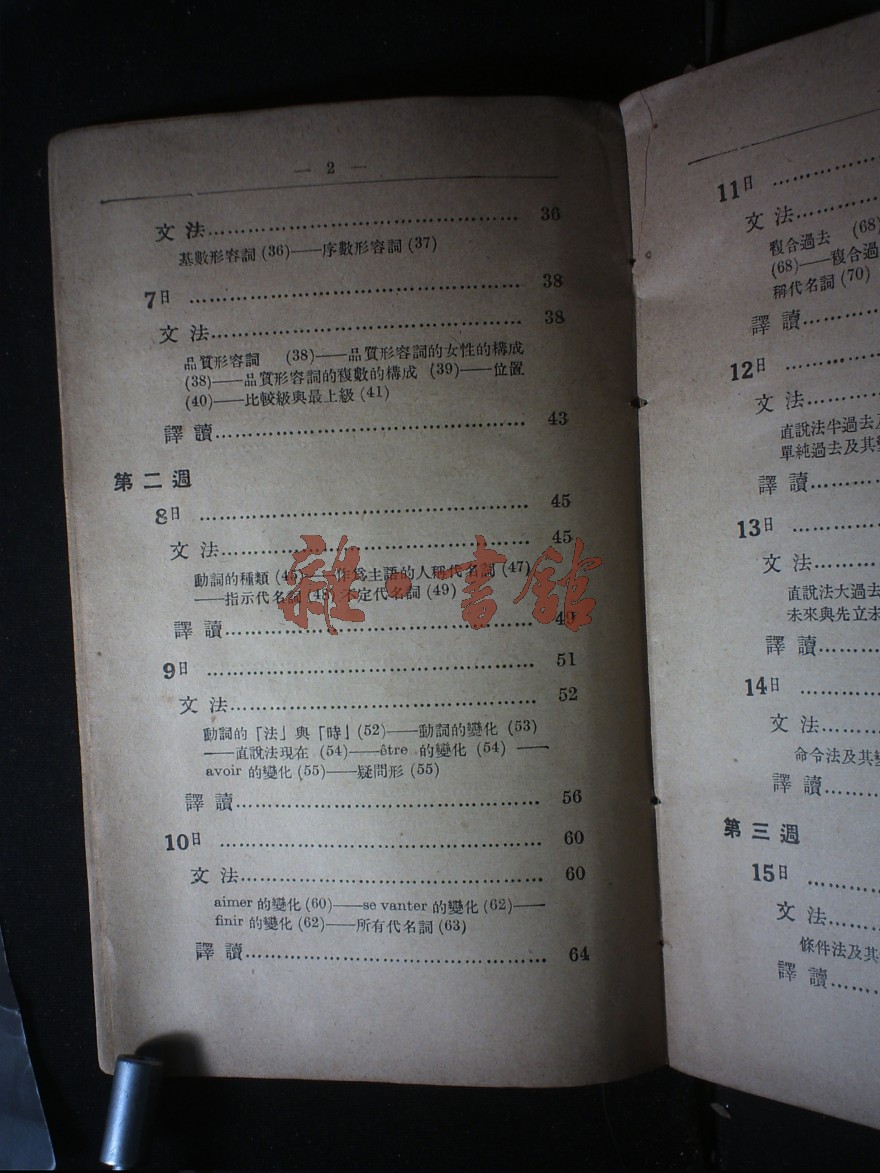 — 2 —
文法 36
基數形容詞 (36)——序數形容詞 (37)
7日 38
文法 38
品質形容詞 (38)——品質形容詞的女性的構成
(38)——品質形容詞的複數的構成 (39)——位置
(40)——比較級與最上級 (41)
譯讀 43
第二週
8日 45
文法 45
動詞的種類 (45)——作爲主語的人稱代名詞 (47)
——指示代名詞 (48) 不定代名詞 (49)
譯讀 49
9日 51
文法 52
動詞的「法」與「時」(52)——動詞的變化 (53)
——直說法現在 (54)——être 的變化 (54) ——
avoir 的變化 (55)——疑問形 (55)
譯讀 56
10日 60
文法 60
aimer 的變化 (60)——se vanter 的變化 (62)——
finir 的變化 (62)——所有代名詞 (63)
譯讀 64
雜·書館
11日
文法
複合過去 (68)
(68)——複合過
稱代名詞 (70)
譯讀
12日
文法
直說法半過去及
單純過去及其
譯讀
13日
文法
直說法大過去
未來與先立未
譯讀
14日
文法
命令法及其
譯讀
第三週
15日
文法
條件法及其
譯讀